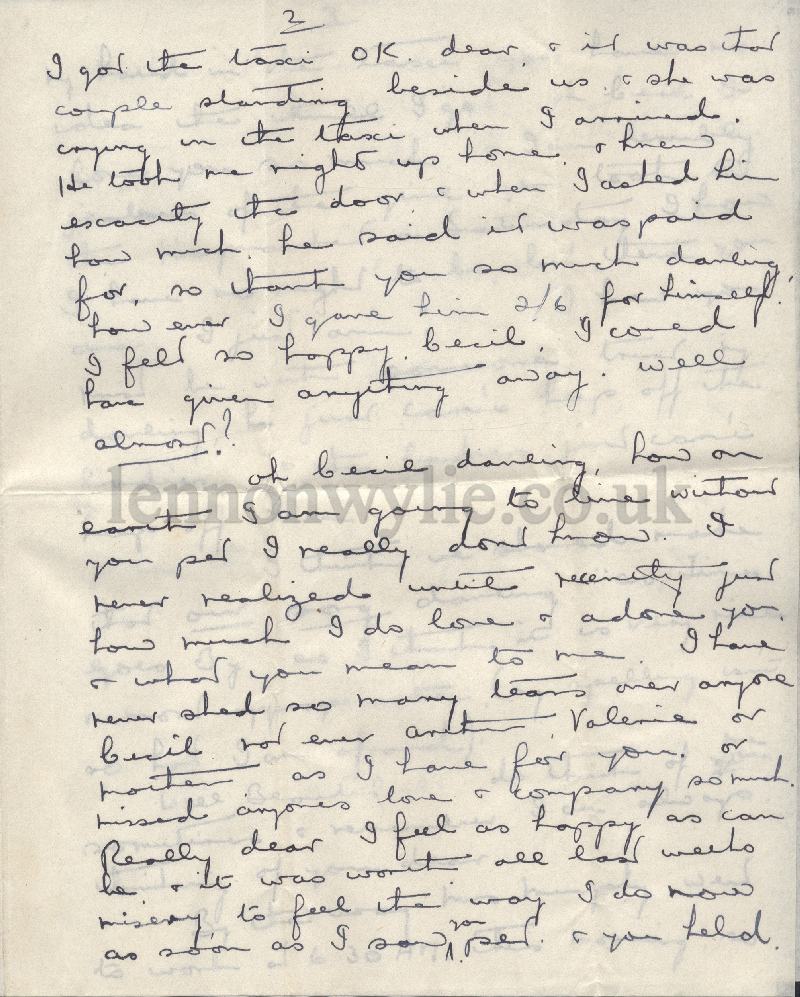 2
I got the taxi OK. dear, & it was that
couple standing beside us & she was
crying in the taxi when I arrived.
He took me right up home. & knew
exacaty the door & when I asked him
how much. he said it was paid
for, so thank you so much darling,
how ever I gave him 2/6 for himself!
I felt so happy. Cecil, I coued
have given anything away. well
almost?
oh Cecil darling, how on
earth I am going to live without
you pet I really dont know. I
never realized until recently just
how much I do love & adore you.
& what you mean to me. I have
never shed so many tears over anyone
Cecil not even Valerie or
mother as I have for you. or
missed anyones love & company so much.
Really dear I feel as happy as can
be & it was worth all last weeks
misery to feel the way I do now
as soon as I saw you pet. & you held.
lennonwylie.co.uk